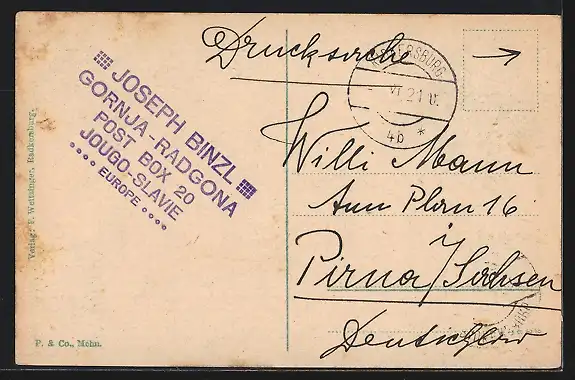 Drucksache
JOSEPH BINZL
GORNJA RADGONA
POST BOX 20
JOUGO-SLAVIE
EUROPE
VI 21
4b *
Willi Mann
Am Plan 16
Pirna / Sachsen
Deutschland
Verlag: F. Wettsinger, Radkersburg.
P. & Co., Mchn.